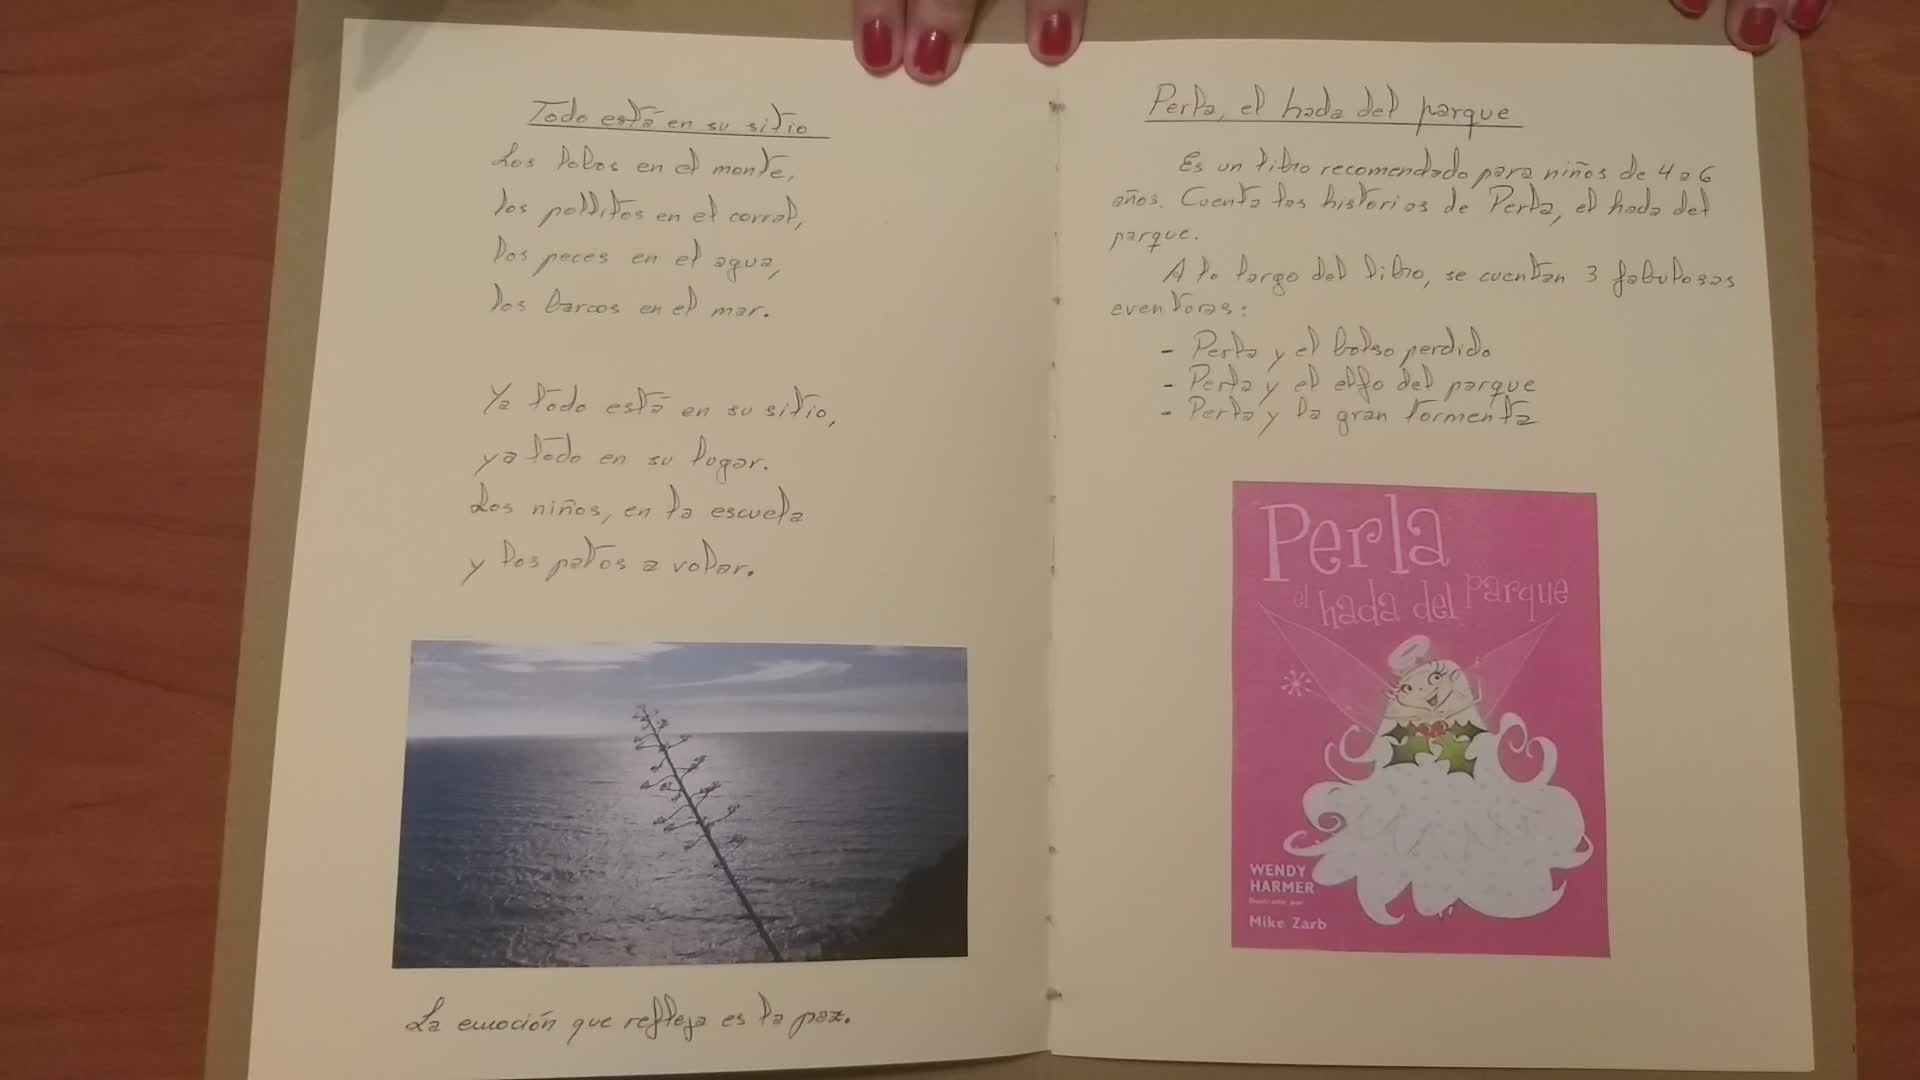 Todo está en su sitio
Los lobos en el monte,
los pollitos en el corral,
los peces en el agua,
los barcos en el mar.
Ya todo está en su sitio,
ya todo en su lugar.
Los niños, en la escuela
y los patos a volar.
La emoción que refleja es la paz.
Perla, el hada del parque
Es un libro recomendado para niños de 4 a 6
años. Cuenta las historias de Perla, el hada del
parque.
A lo largo del libro, se cuentan 3 fabulosas
aventuras:
- Perla y el bolso perdido
- Perla y el elfo del parque
- Perla y la gran tormenta
Perla
el hada del parque
WENDY
HARMER
Ilustrado por
Mike Zarb